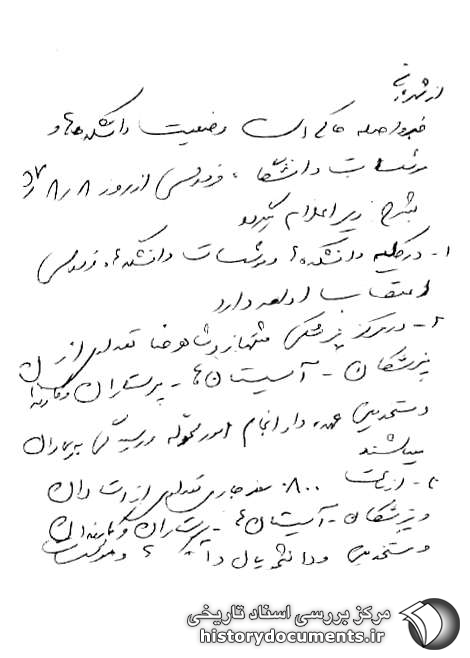 از شهربانی
خبر واصله حاکی است وضعیت دانشکده‌ها و
مؤسسات دانشگاه فردوسی از روز ۸/۸
بشرح زیر اعلام میگردد
۱- در کلیه دانشکده‌ها و مؤسسات دانشگاه فردوسی
اعتصاب ادامه دارد
۲- در مرکز پزشکی شهناز و شاهرضا تعدادی از
پزشکان - آسیستان‌ها - پرستاران و کارمندان
و مستخدمین عهده‌دار انجام امور محوله و رسیدگی به بیماران
میباشند
۳- از ساعت ۰۸۰۰ جاری تعدادی از استادان
و پزشکان - آسیستان‌ها - پرستاران و کارمندان
و مستخدمین و دانشجویان
مرکز بررسی اسناد تاریخی
historydocuments.ir